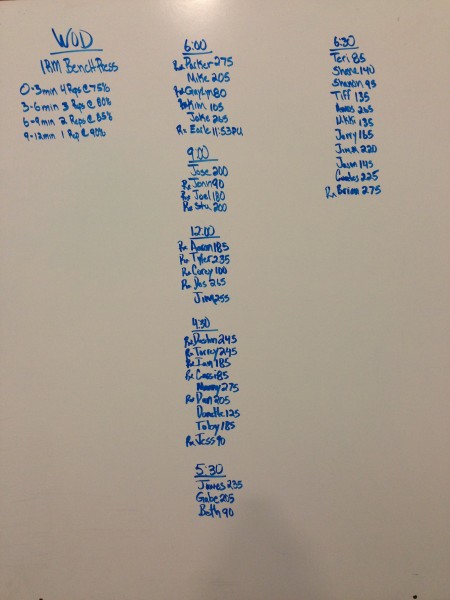 WOD
1RM Bench Press
0-3min 4 Reps @ 75%
3-6min 3 Reps @ 80%
6-9min 2 Reps @ 85%
9-12min 1 Rep @ 90%
6:00
Rx Parker 275
Mike 205
Rx Gaylyn 80
Rx Kim 105
Jake 265
Rx Earle 11:53PU
9:00
Jose 200
Rx Jenn 90
Rx Joel 180
Rx Stu 200
12:00
Rx Aaron 185
Rx Tyler 235
Rx Corey 100
Rx Wes 265
Jim 255
4:30
Rx Dustin 245
Rx Torrey 245
Rx Ian 185
Rx Cassi 85
Manny 275
Rx Dan 205
Danette 125
Toby 185
Rx Jess 90
5:30
James 235
Gabe 205
Beth 90
6:30
Teri 85
Shane 140
Sharon 95
Tiff 135
265
Nikki 135
Jerry 165
Jimm 220
Jason 145
Carlos 225
Rx Brian 275